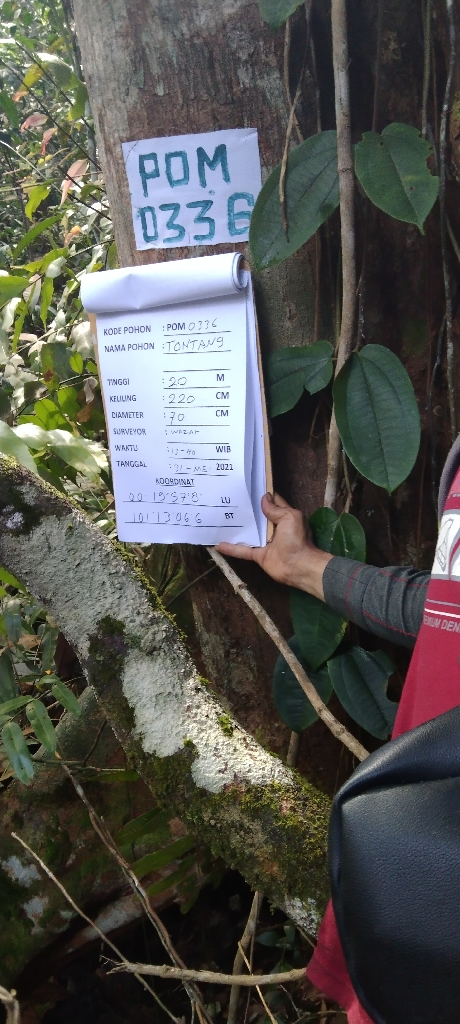 POM
0336
KODE POHON : POM 0336
NAMA POHON : TONTANG
TINGGI : 20 M
KELILING : 220 CM
DIAMETER : 70 CM
SURVEYOR : WAZAR
WAKTU : 12-40 WIB
TANGGAL : 31-MEI 2021
KOORDINAT
00°19'57'8" LU
101°13066 BT
EMIUM DEN